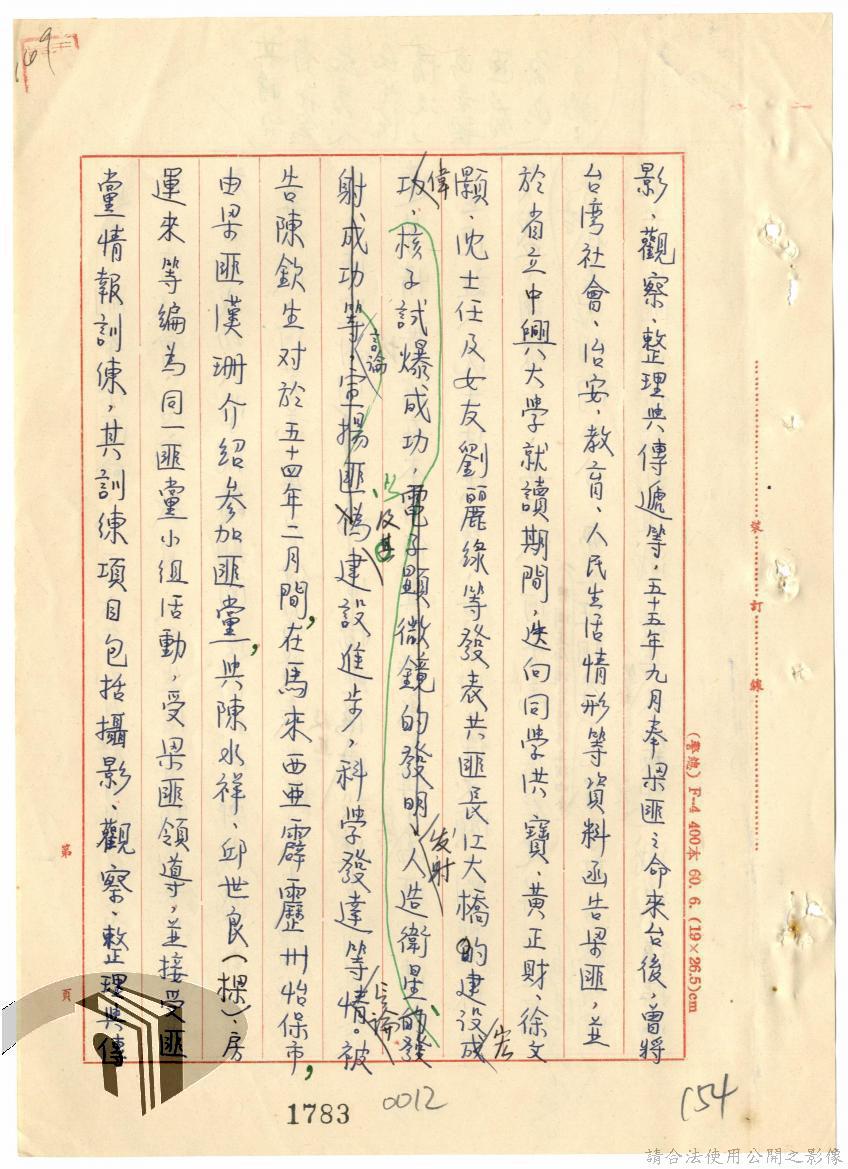 影、觀察、整理與傳遞等，五十五年九月奉梁匪之命來台後，曾將
台湾社會、治安、教育、人民生活情形等資料函告梁匪，並
於省立中興大学就讀期間，迭向同学洪寶、黃正財、徐文
顥、沈士任及女友劉麗綠等發表共匪長江大橋的建设成
宏
偉
功、核子試爆成功，電子顯微鏡的發明、人造衛星的發
发射
射成功等，宣揚匪偽建設進步，科学發達等情。被
言論
以及其
言論
告陳欽生对於五十四年二月間，在馬來西亚霹靂州怡保市，
由梁匪漢珊介紹参加匪黨，與陳水祥、邱世良（棵）房
運來等編為同一匪黨小組活動，受梁匪領導，並接受匪
黨情報訓練，其訓練項目包括攝影、觀察、整理與傳
第 頁
裝 訂 線
(警總) F-4 400本 60. 6. (19×26.5)cm
169
1783
0012
154
請合法使用公開之影像